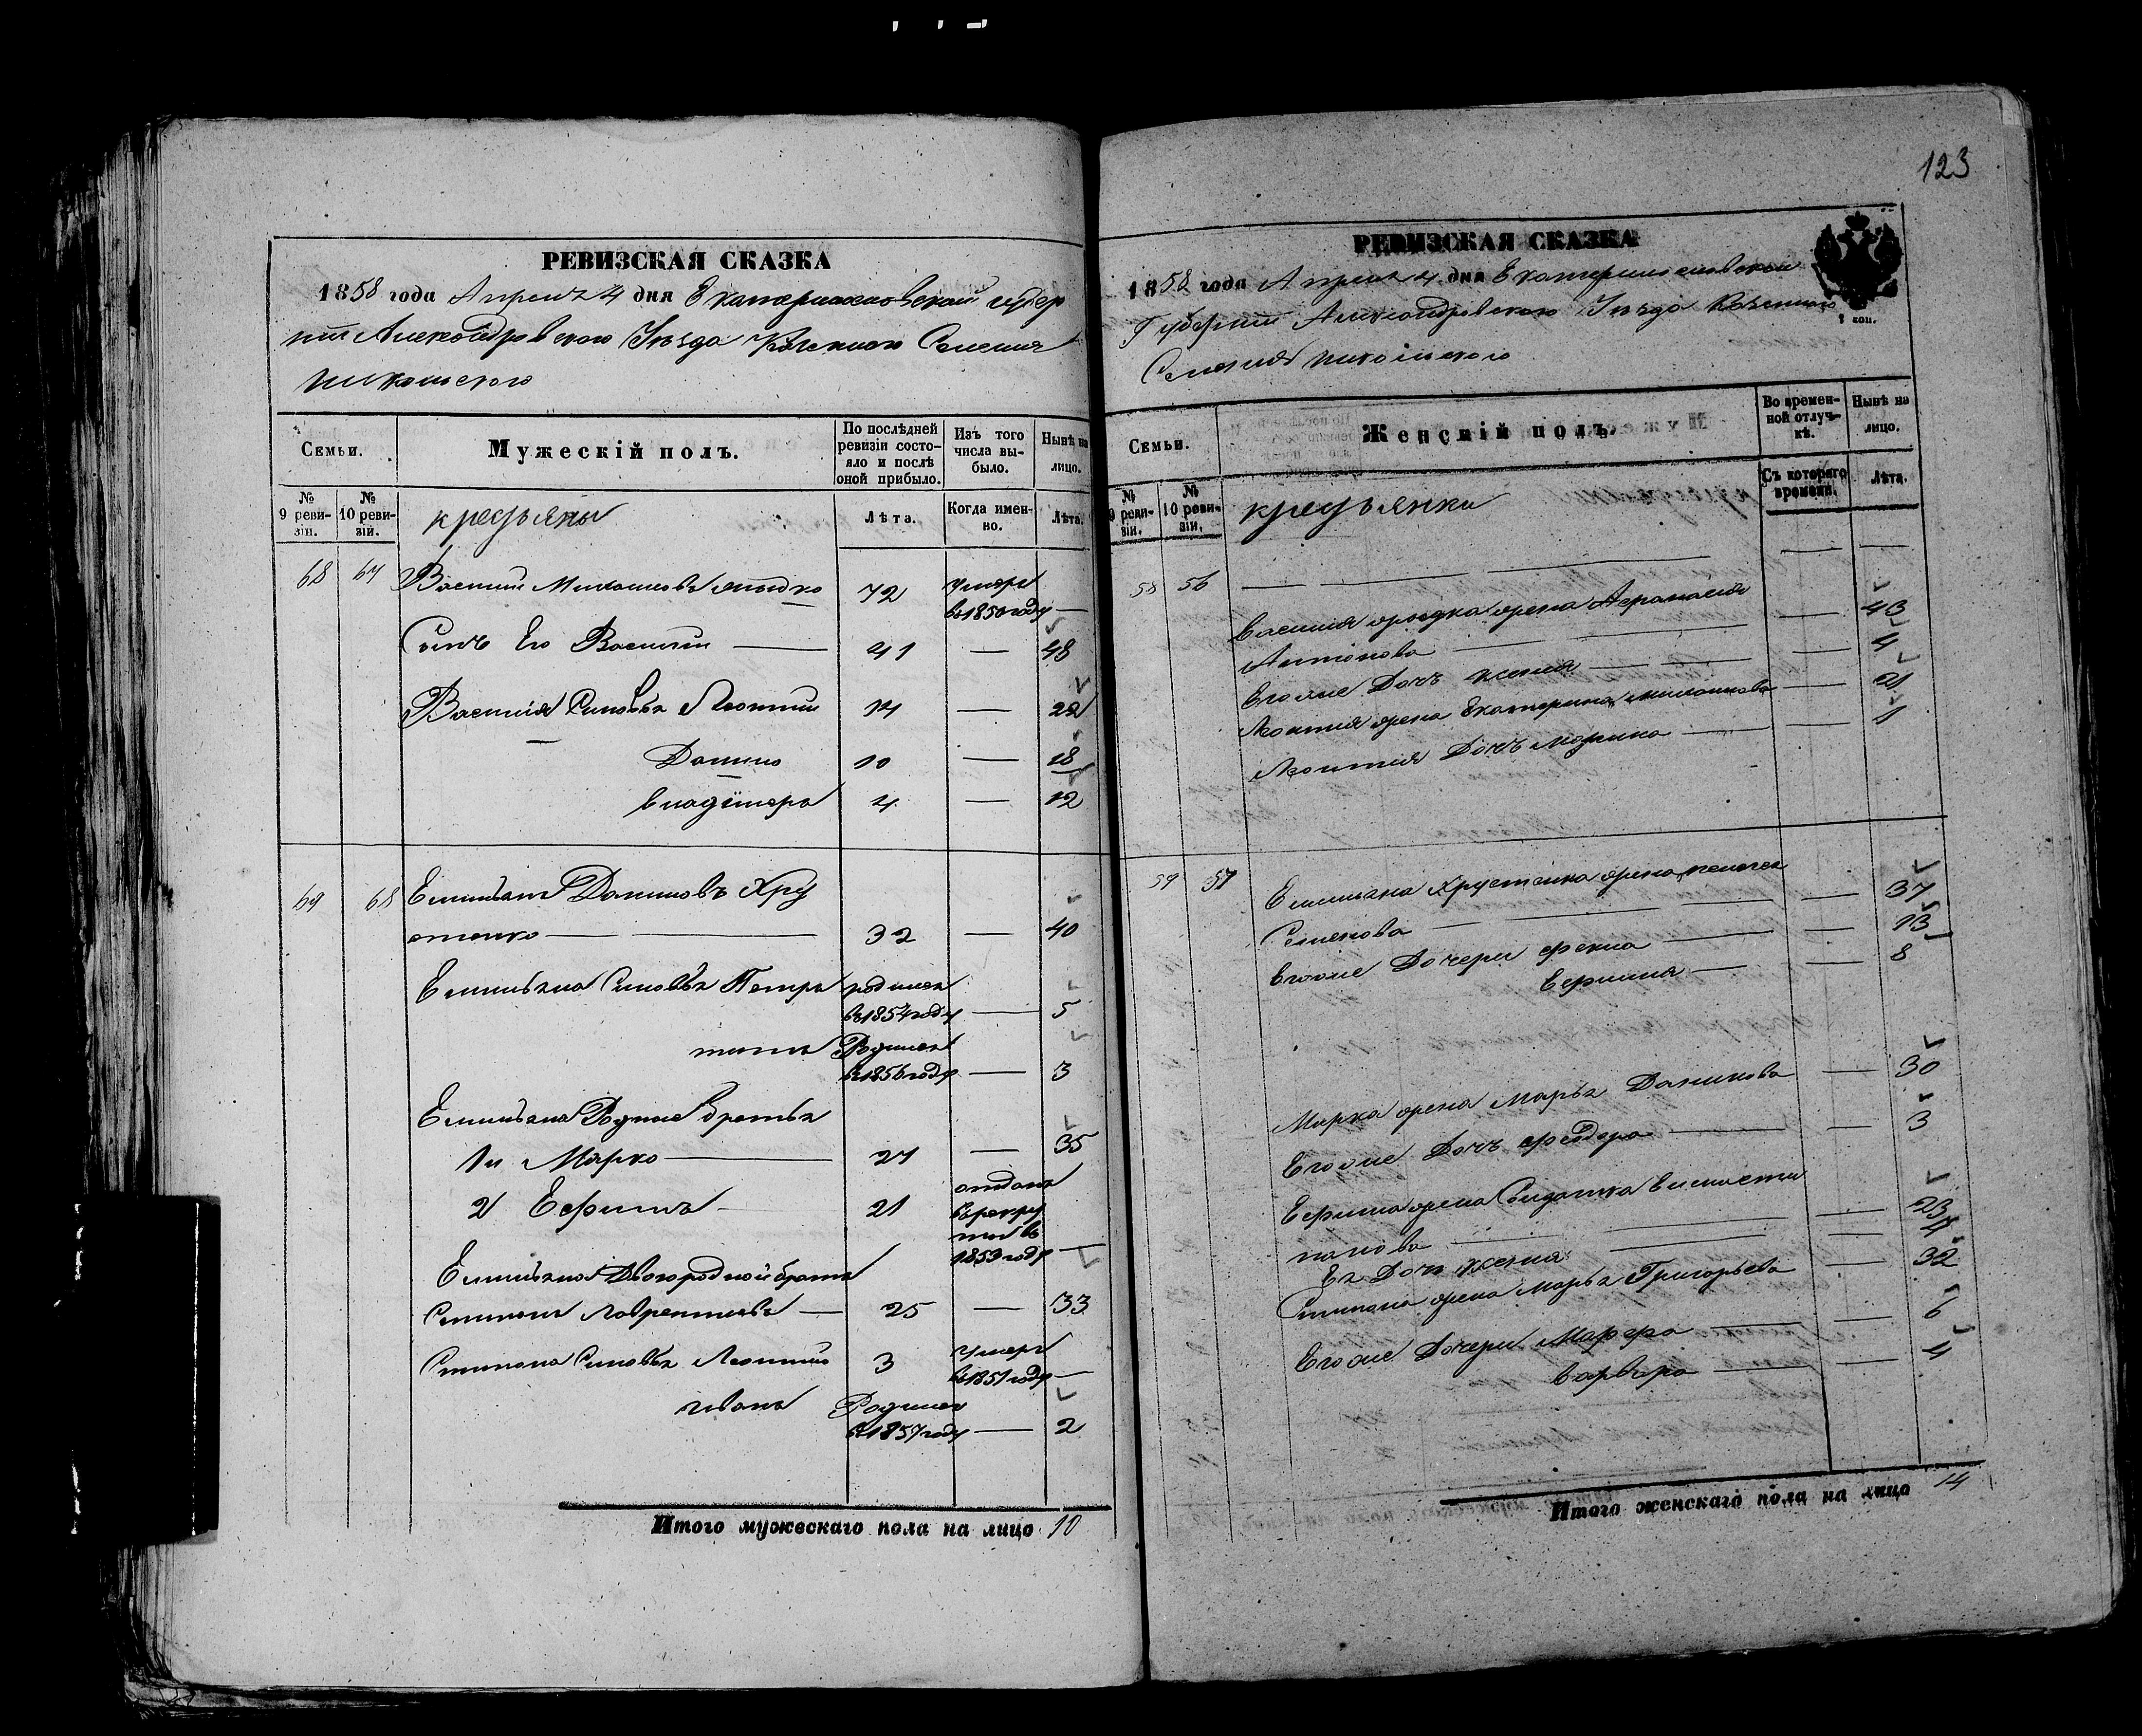 123
РЕВИЗСКАЯ СКАЗКА
1858 года Апреля 4 дня Екатеринославской губер
нии Александровского Уезда Казенного Селения
Никольского
Семьи.
Мужескій полъ.
По послѣдней ревизіи состояло и послѣ оной прибыло.
Изъ того числа выбыло.
Нынѣ на лицо.
№ 9 реви-зіи.
№ 10 реви-зіи.
крестьяны
Лѣта.
Когда имен-но.
Лѣта.
68 67 Василий 72 умеръ
въ 1850 году —
Сынъ Его Василий — 41 — 48
Василия Сыновья Леонтий 14 — 22
Данило 10 — 18
Владимеръ 4 — 12
69 68 Емельянъ Даниловъ Хру
стенко — 32 — 40
Емельяна Сыновья Петръ родился
въ 1854 году — 5
Родился
въ 1856 году — 3
Емельяна Родные братья
1й Марко — 27 — 35
2 Ефимъ — 21 отданъ
въ рекру
ты въ
1853 году —
Емельяна Двоюродной братъ
Степанъ Лаврентиевъ — 25 — 33
Степана Сыновья Леонтий 3 умеръ
въ 1851 году —
Иванъ Родился
въ 1857 году — 2
Итого мужескаго пола на лицо 10
РЕВИЗСКАЯ СКАЗКА
1858 года Апреля 4 дня Екатеринославской
Губернии Александровского Уезда Казенного
Селения Никольского
коп.
Семьи.
Женскій полъ.
Во времен-ной отлуч-кѣ.
Нынѣ на лицо.
№ 9 реви-зіи.
№ 10 реви-зіи.
крестьянки
Съ котораго времени.
Лѣта.
58 56 —
Василия жена Афанасия
Антонова — 43
Его же Дочь Ксения — 4
Леонтия жена Екатерина — 21
Леонтия Дочь Марина — 1
59 57 Емельяна Хрустенка жена Пелагея
Семенова — 37
Его же Дочери Фекла — 13
Ефимия — 8
Марка жена Марья Данилова — 30
Его же Дочь Феодора — 3
Ефима жена Солдатка
— 23
Ея Дочь Ксения — 4
Степана жена Марья Григорьева — 32
Его же Дочери Марфа — 6
Варвара — 4
Итого женскаго пола на лицо 14